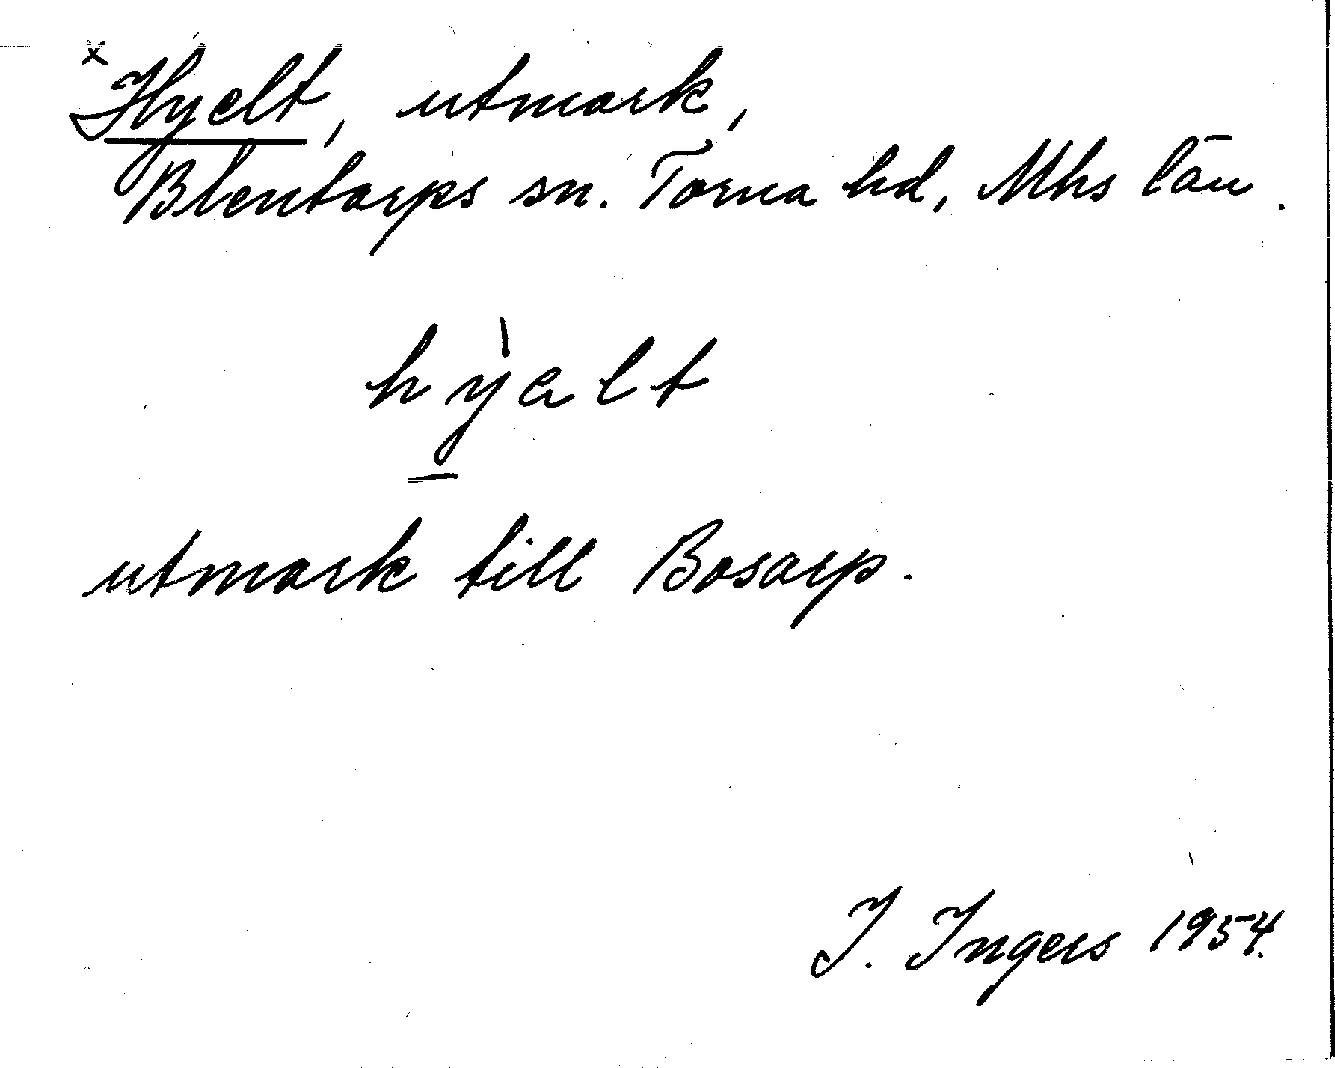 x
Hyelt, utmark,
Blentarps sn. Torna hd, Mhs län.
hỳelt
utmark till Bosarp.
I. Ingers 1954.